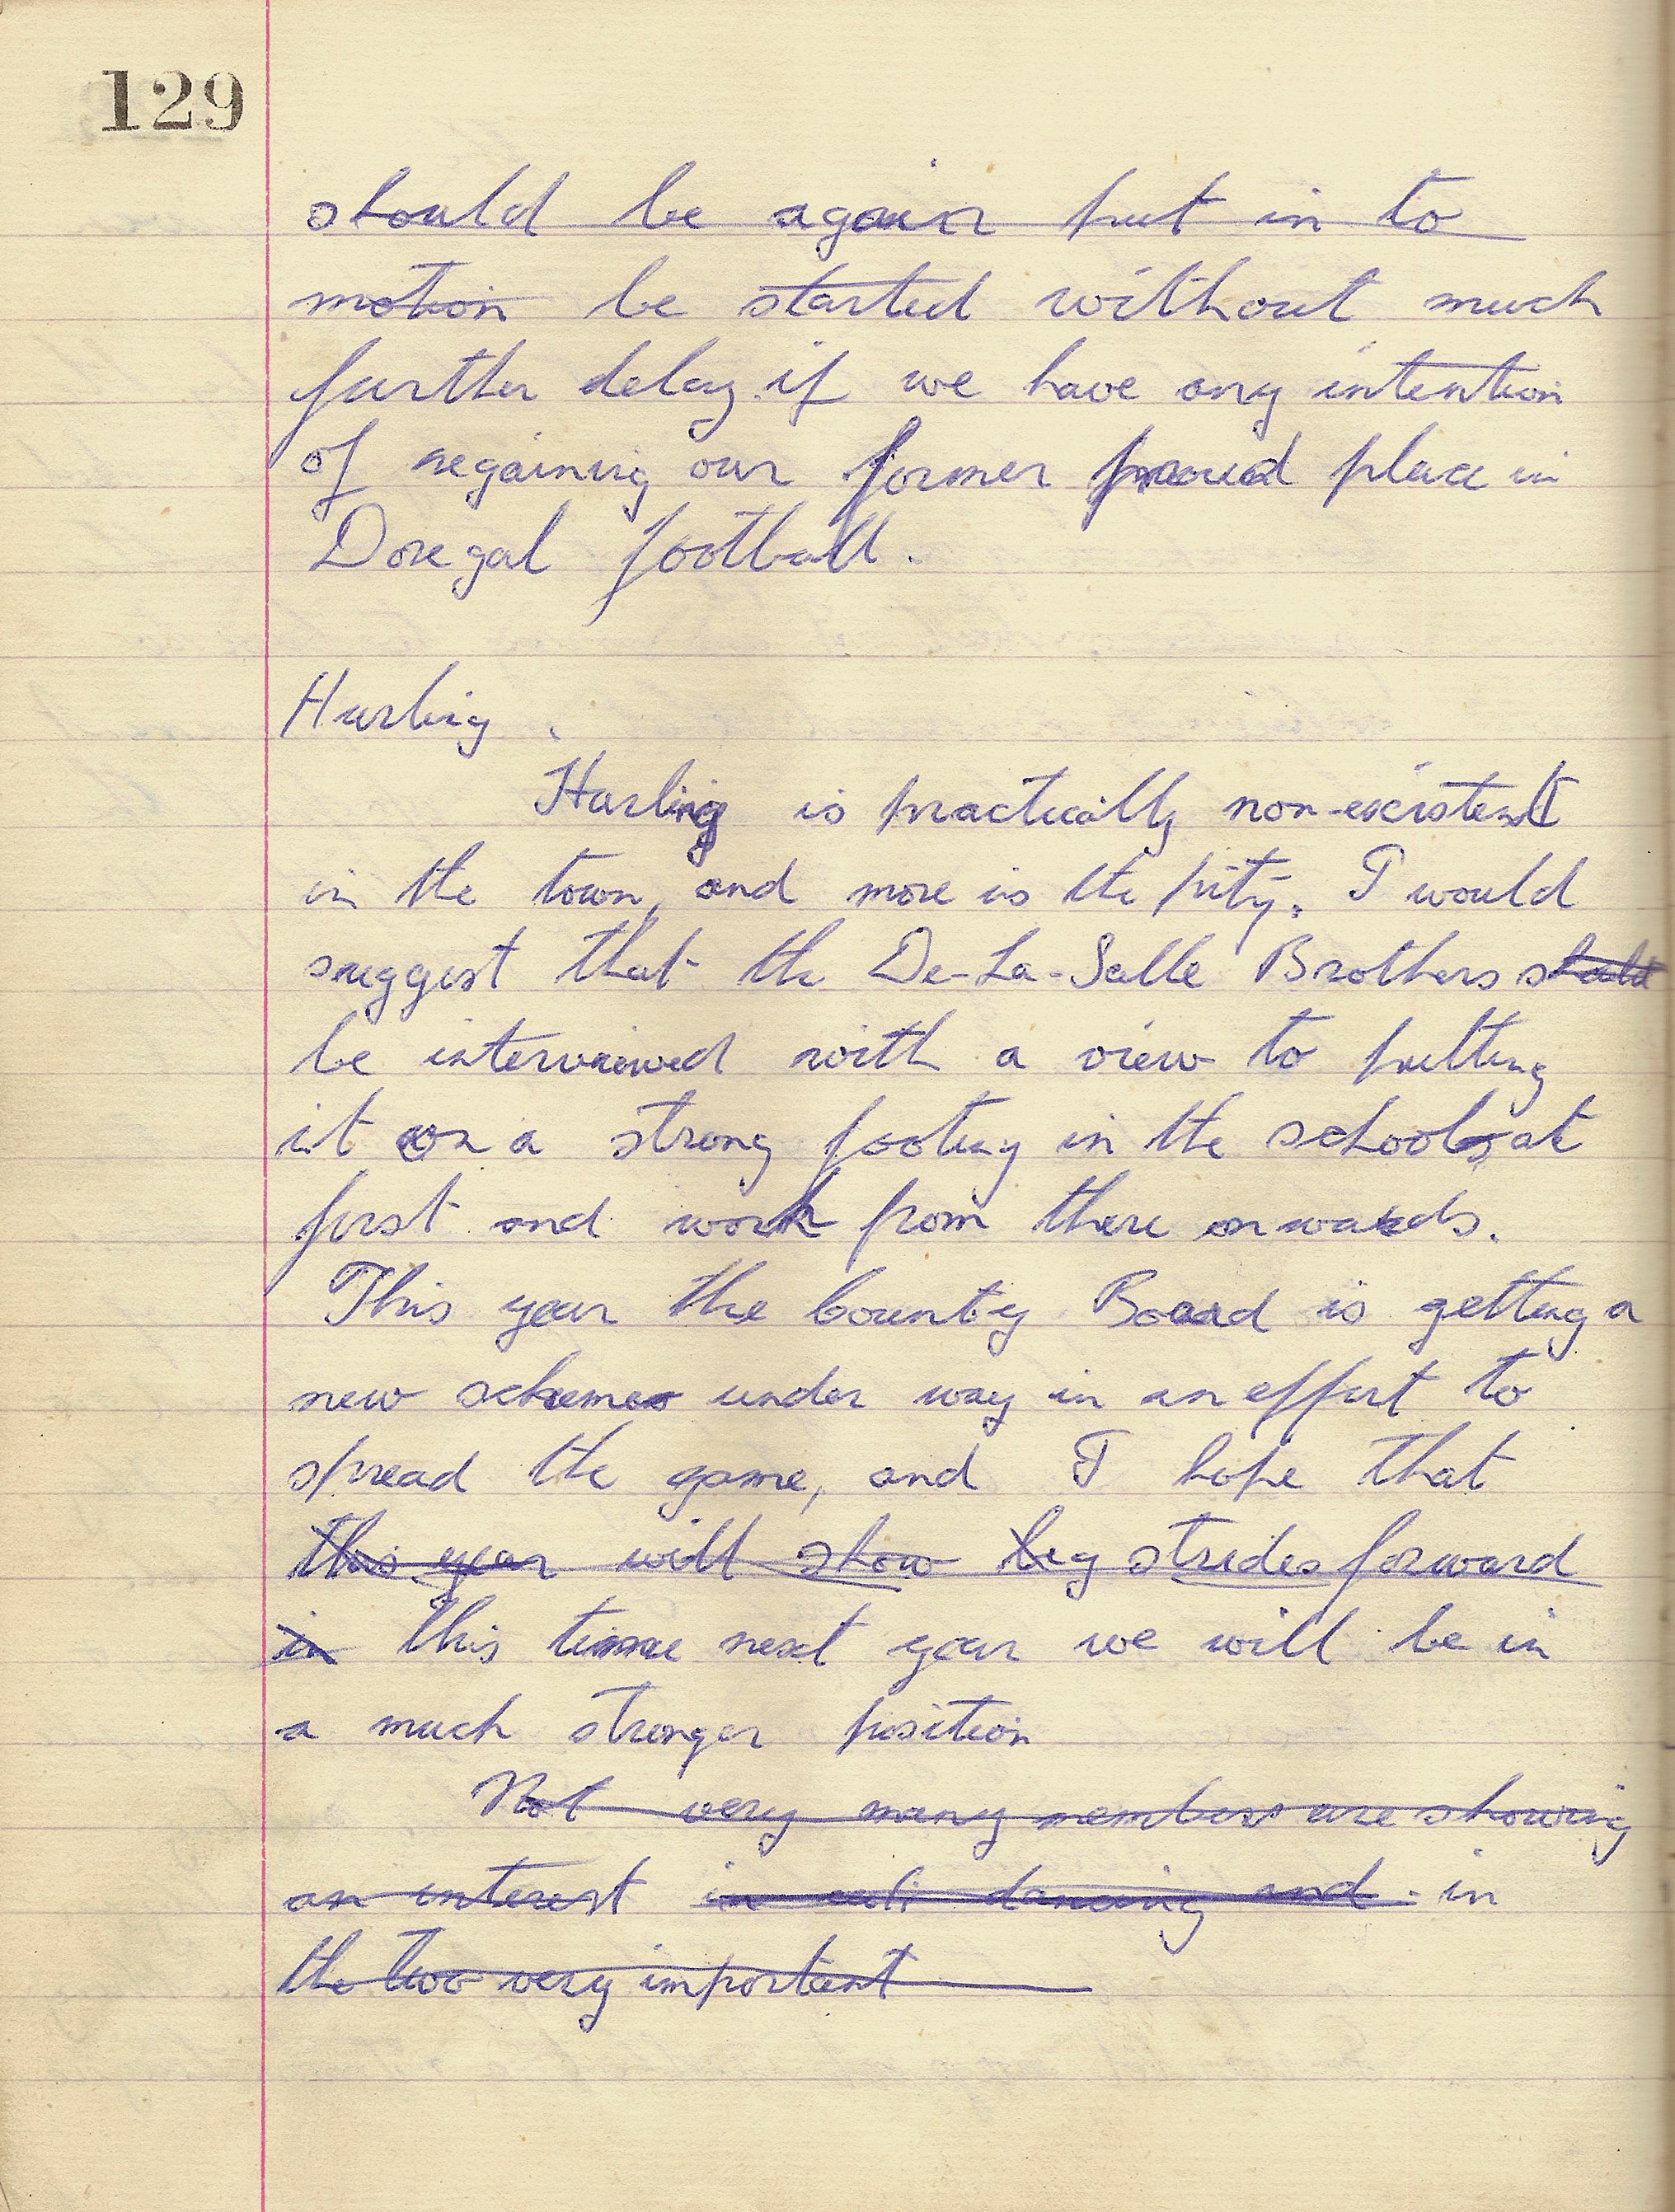 129
should be again put in to
motion be started without much
further delay if we have any intention
of regaining our former proud place in
Donegal football.
Hurling.
Hurling is practically non-existent
in the town, and more is the pity. I would
suggest that the De-La-Salle Brothers should
be interviewed with a view to putting
it on a strong footing in the schools at
first and work from there onwards.
This year the County Board is getting a
new scheme under way in an effort to
spread the game, and I hope that
this year will show big strides forward
in this time next year we will be in
a much stronger position
Not very many members are showing
an interest in ceili dancing and in
the two very important